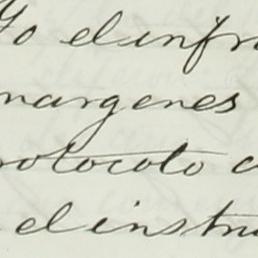 Yo el infr
margenes
rotocolo
el instru